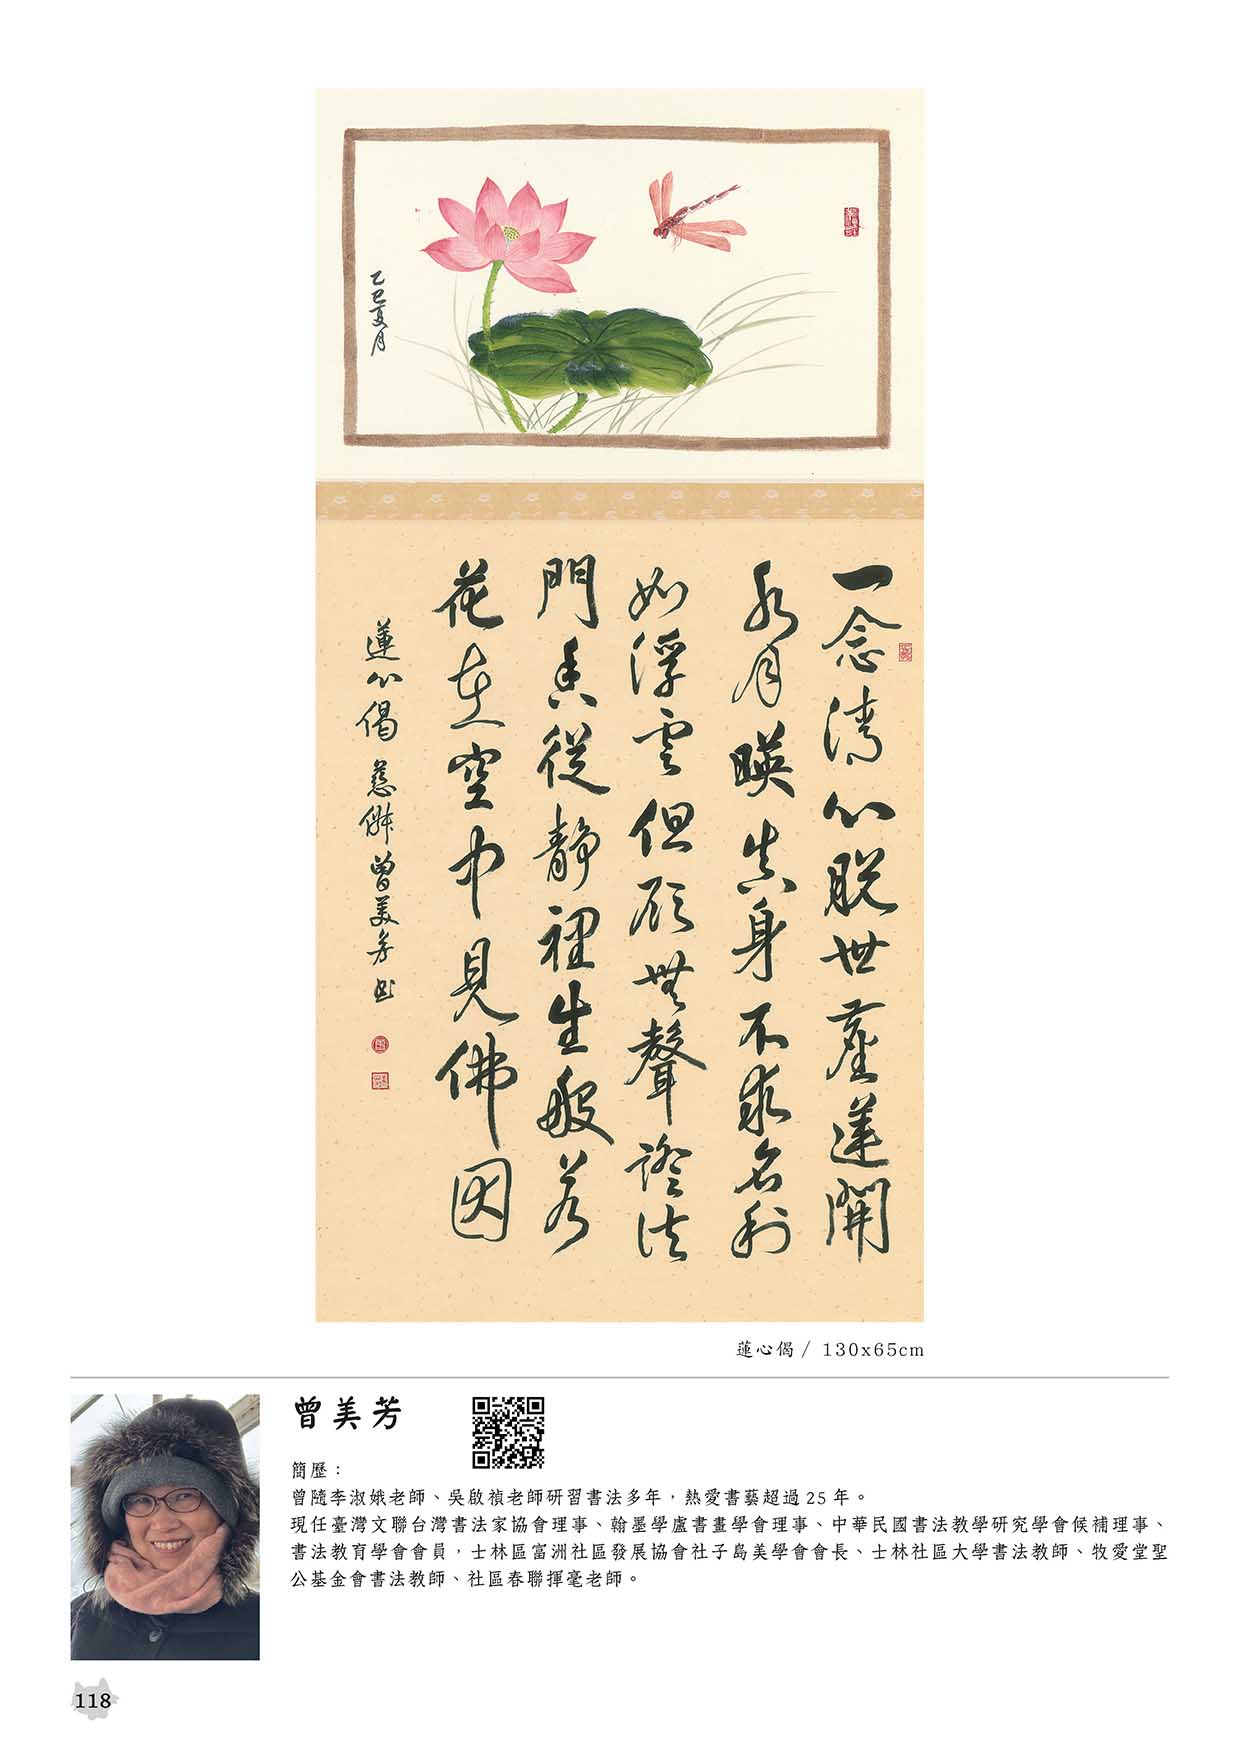 乙巳夏月
一念清心脱世塵蓮開
水月暎真身不求名利
如浮雲但願無聲證法
門香從靜裡生般若
花在空中見佛因
蓮心偈 慈 曾美芳書
蓮心偈 / 130x65cm
曾美芳
簡歷：
曾隨李淑娥老師、吳啟禎老師研習書法多年，熱愛書藝超過25年。
現任臺灣文聯台灣書法家協會理事、翰墨學盧書畫學會理事、中華民國書法教學研究學會候補理事、
書法教育學會會員，士林區富洲社區發展協會社子島美學會會長、士林社區大學書法教師、牧愛堂聖
公基金會書法教師、社區春聯揮毫老師。
118